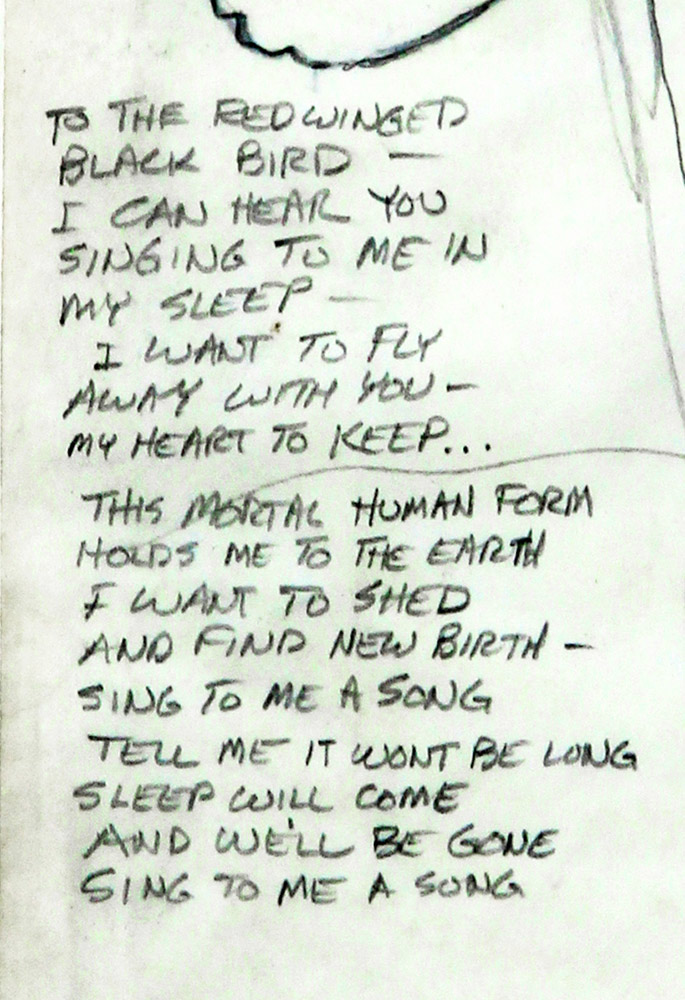 TO THE REDWINGED
BLACK BIRD —
I CAN HEAR YOU
SINGING TO ME IN
MY SLEEP —
I WANT TO FLY
AWAY WITH YOU —
MY HEART TO KEEP...
THIS MORTAL HUMAN FORM
HOLDS ME TO THE EARTH
I WANT TO SHED
AND FIND NEW BIRTH —
SING TO ME A SONG
TELL ME IT WONT BE LONG
SLEEP WILL COME
AND WE'LL BE GONE
SING TO ME A SONG